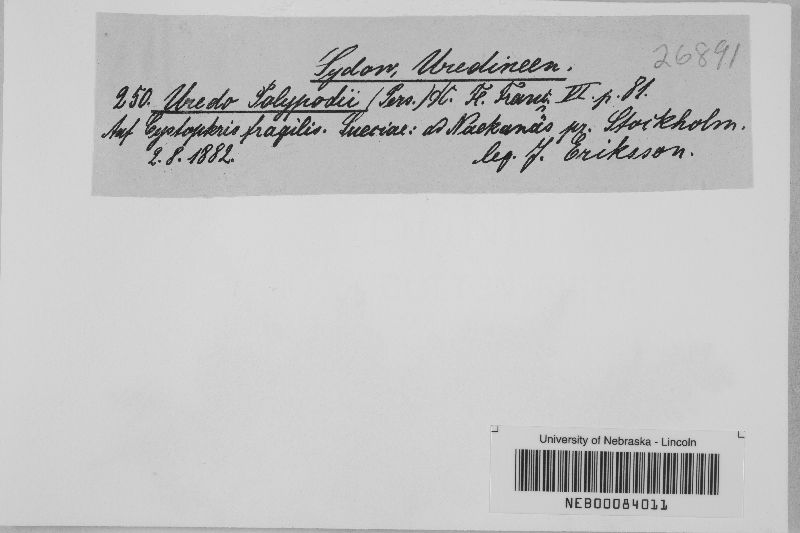 Sydow, Uredineen.
26891
250. Uredo Polypodii (Pers.) DC. Fl. Franç. VI. p. 81.
Auf Cystopteris fragilis. Sueciae: ad Nackanäs pr. Stockholm.
2. 8. 1882. leg. J. Eriksson.
University of Nebraska - Lincoln
NEB00084011